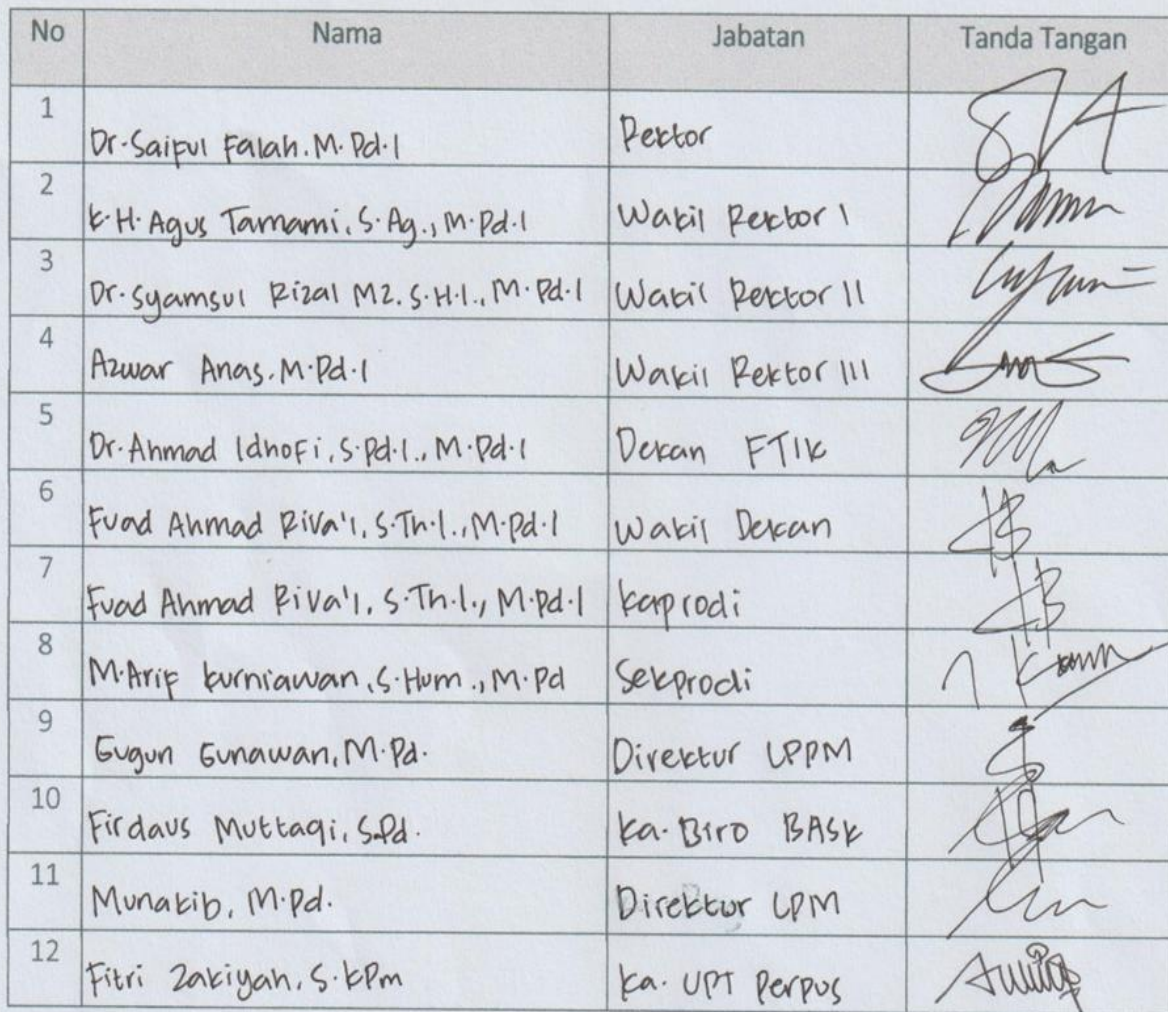 No Nama Jabatan Tanda Tangan
1 Dr. Saipul Falah. M. Pd. I Rektor
2 K.H. Agus Tamami, S. Ag., M. Pd. I Wakil Rektor I
3 Dr. Syamsul Rizal MZ. S.H.I., M. Pd. I Wakil Rektor II
4 Azwar Anas. M.Pd.I Wakil Rektor III
5 Dr. Ahmad Idhofi, S.Pd.I., M.Pd.I Dekan FTIK
6 Fuad Ahmad Riva'I, S.Th.I., M.Pd.I Wakil Dekan
7 Fuad Ahmad Riva'I, S.Th.I., M.Pd.I Kaprodi
8 M. Arif Kurniawan, S.Hum., M.Pd Sekprodi
9 Gugun Gunawan, M.Pd. Direktur LPPM
10 Firdaus Muttaqi, S.Pd. Ka. Biro BASK
11 Munakib, M.Pd. Direktur LPM
12 Fitri Zakiyah, S.KPm Ka. UPT Perpus